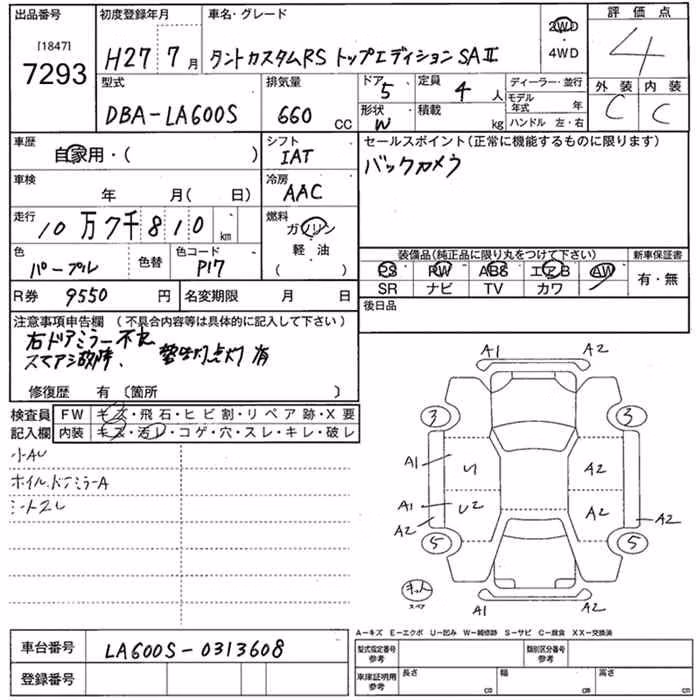 出品番号
[1847]
7293
初度登録年月
H27 7月
車名・グレード
タントカスタムRS トップエディション SAⅡ
2WD
・
4WD
評価点
4
外装 内装
C C
型式
DBA-LA600S
排気量
660 cc
ドア
5
定員
4 人
形状
W
積載
kg
ディーラー・並行
モデル年式 年
ハンドル 左・右
車歴
自家用・( )
シフト
IAT
セールスポイント(正常に機能するものに限ります)
バックカメラ
車検
年 月( 日)
冷房
AAC
走行
10万7千810 km
燃料
ガソリン
軽・油
( )
色
パープル
色替
色コード
P17
装備品(純正品に限り丸をつけて下さい)
PS PW ABS エアB AW
SR ナビ TV カワ
新車保証書
有・無
R券 9550 円
名変期限 月 日
後日品
注意事項申告欄 (不具合内容等は具体的に記入して下さい)
右ドアミラー不良
スマアシ故障、 警告灯点灯 消
修復歴 有 〔箇所 〕
検査員記入欄
FW キズ・飛石・ヒビ割・リペア跡・X要
内装 キズ・汚レ・コゲ・穴・スレ・キレ・破レ
小AU
ホイル、ドアミラーA
シートスレ
A1 A2
3 3
A1 U A2
A1 U2 A2
A2 A2
5 5
キット
スペア
A1 A2
A－キズ E－エクボ U－凹み W－補修跡 S－サビ C－腐食 XX－交換済
車台番号 LA600S-0313608
登録番号
型式指定番号
参考
類別区分番号
参考
車庫証明用
参考
長さ cm
幅 cm
高さ cm